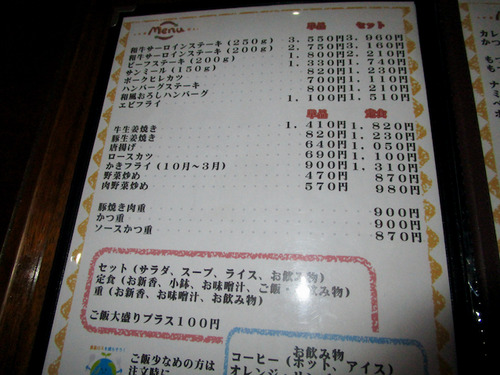 Menu 単品 セット
和牛サーロインステーキ(250g) 3.550円 3.960円
和牛サーロインステーキ(200g) 2.750円 3.160円
ビーフステーキ(200g) 1.800円 2.210円
サンミール(150g) 1.330円 1.740円
ポークヒレカツ 820円 1.230円
ハンバーグステーキ 700円 1.110円
和風おろしハンバーグ 800円 1.210円
エビフライ 1.100円 1.510円
単品 定食
牛生姜焼き 1.410円 1.820円
豚生姜焼き 820円 1.230円
唐揚げ 640円 1.050円
ロースカツ 690円 1.100円
かきフライ(10月~3月) 900円 1.310円
野菜炒め 470円 870円
肉野菜炒め 570円 980円
豚焼き肉重 900円
かつ重 900円
ソースかつ重 870円
セット(サラダ、スープ、ライス、お飲み物)
定食(お新香、小鉢、お味噌汁、ご飯・お飲み物)
重(お新香、お味噌汁、お飲み物)
ご飯大盛りプラス100円
ご飯少なめの方は
注文時に
お飲み物
コーヒー(ホット、アイス)
オレンジジュース
カレ
かつ